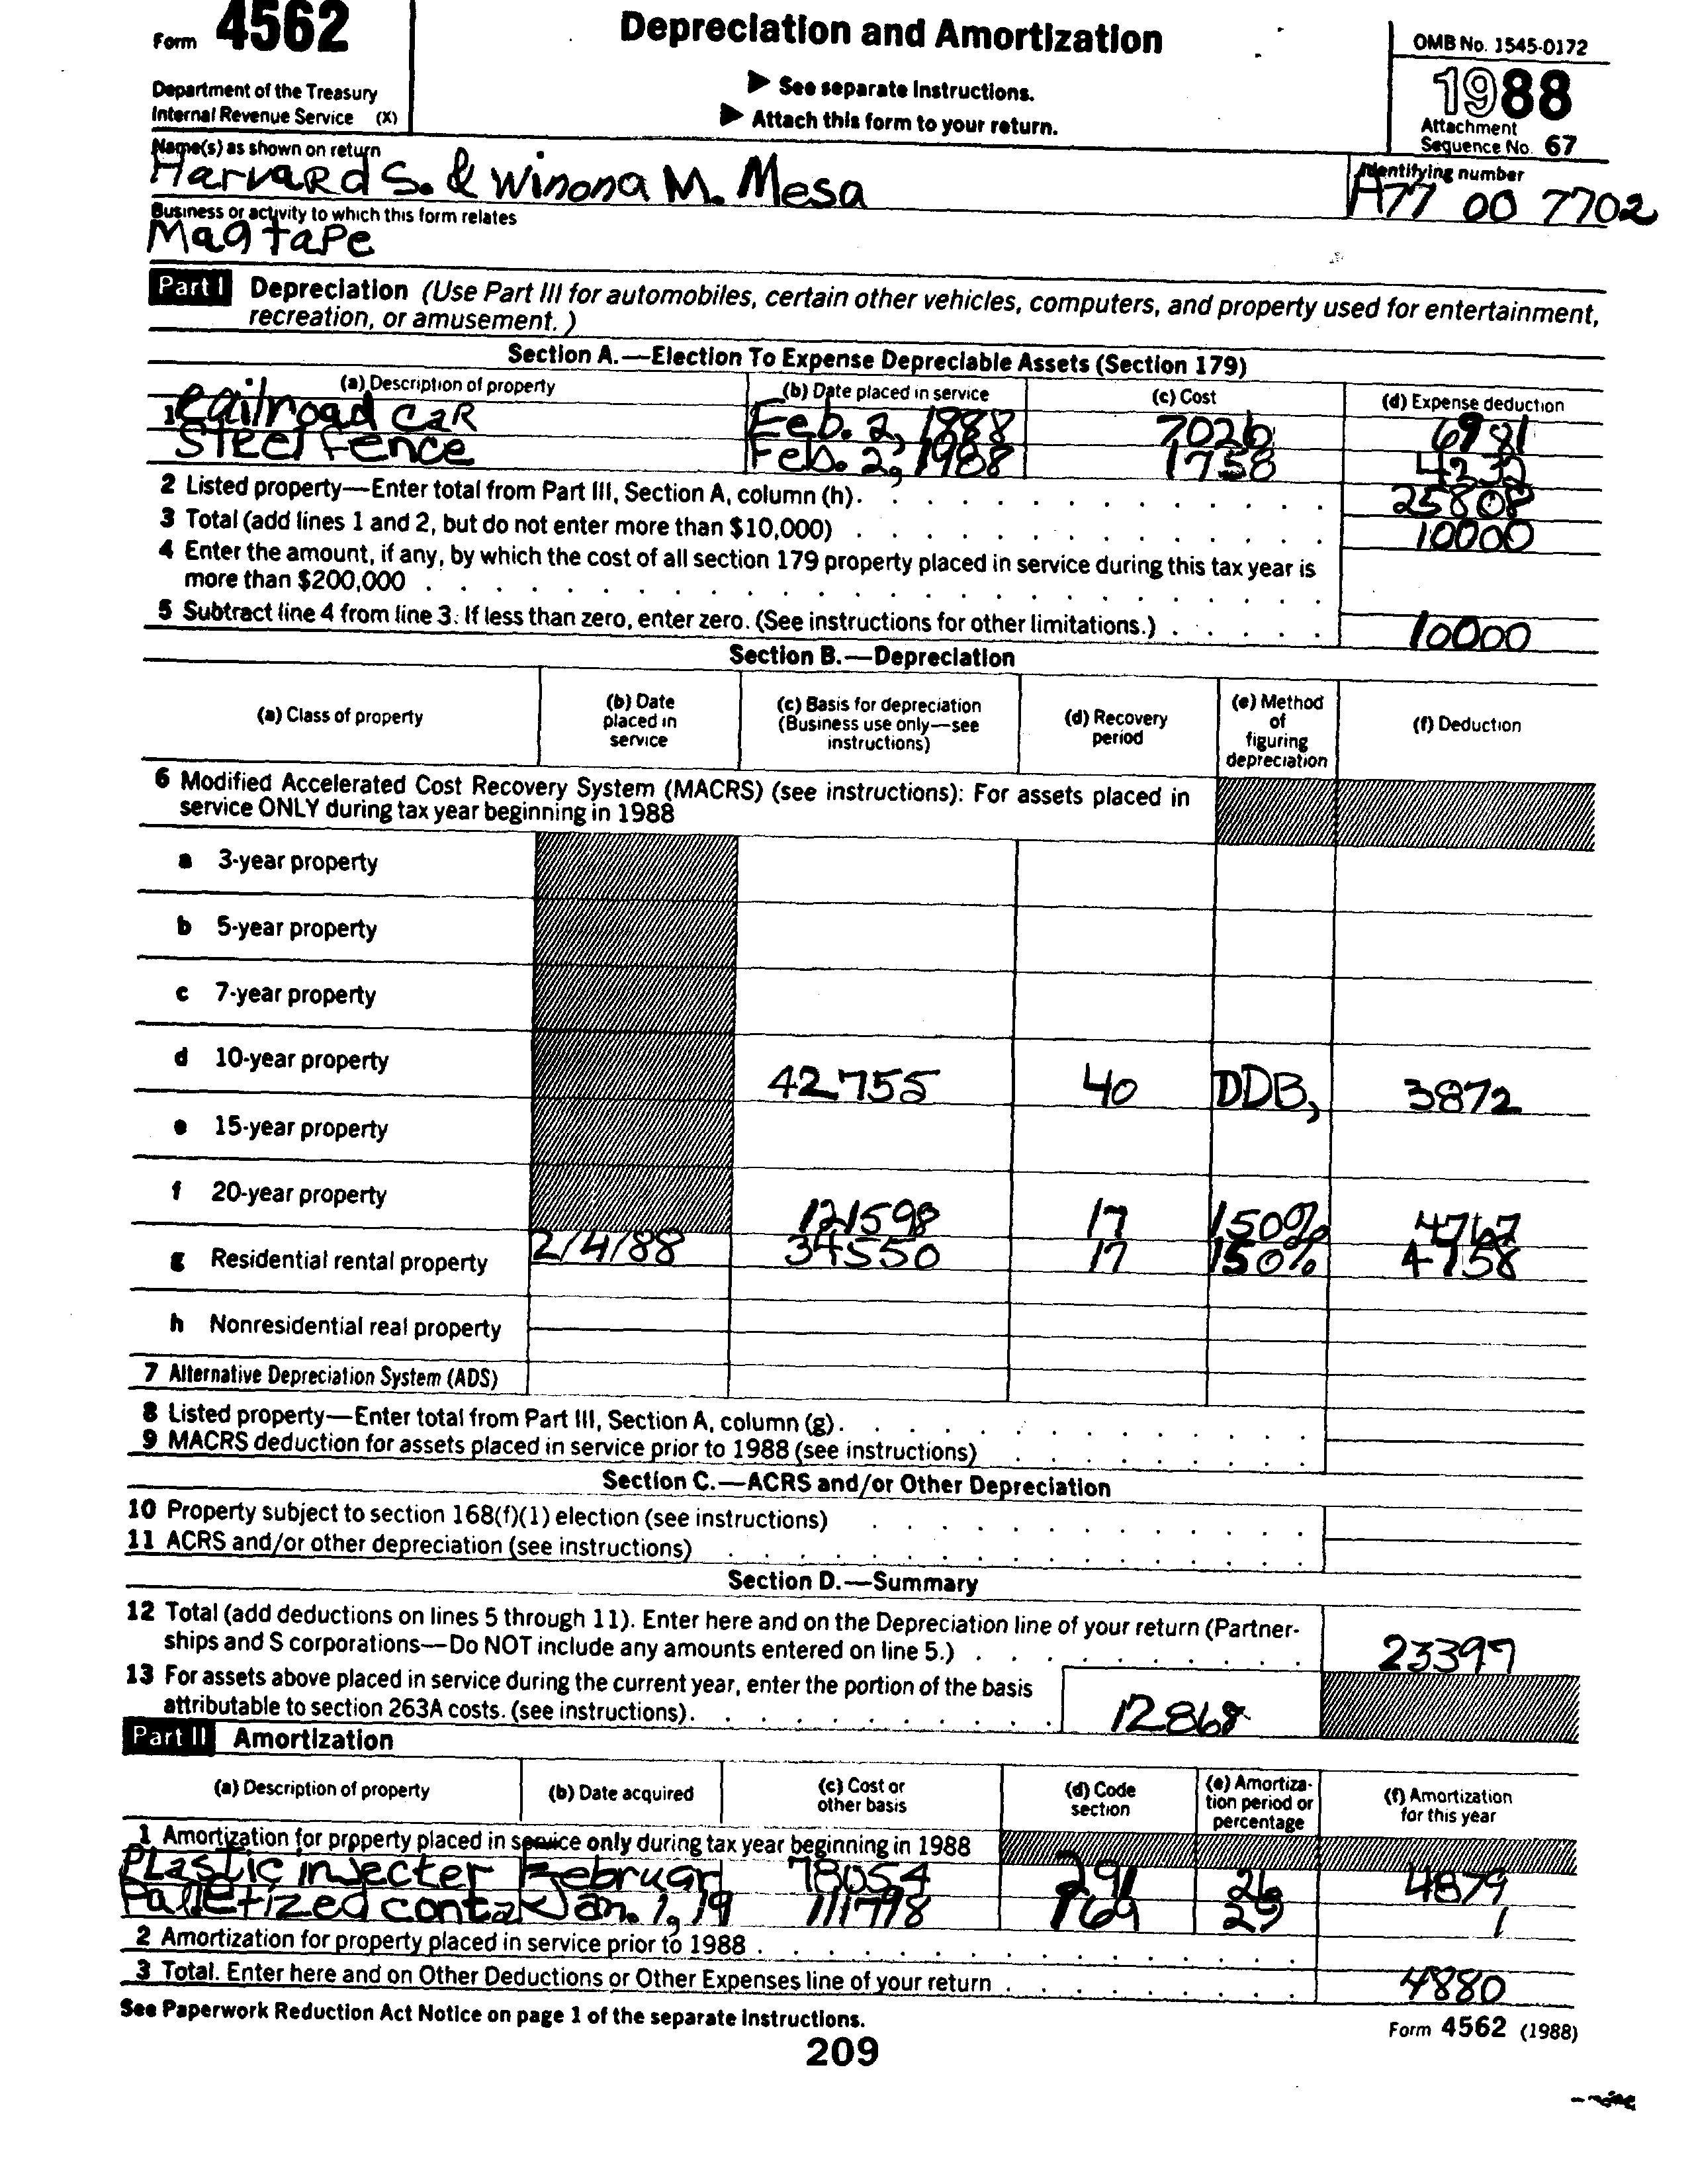 Form 4562
Department of the Treasury
Internal Revenue Service (X)
Depreciation and Amortization
▶ See separate Instructions.
▶ Attach this form to your return.
OMB No. 1545-0172
1988
Attachment
Sequence No. 67
Name(s) as shown on return
Harvard S. & Winona M. Mesa
Identifying number
A77 00 7702
Business or activity to which this form relates
Mag tape
Part I Depreciation (Use Part III for automobiles, certain other vehicles, computers, and property used for entertainment,
recreation, or amusement.)
Section A.—Election To Expense Depreciable Assets (Section 179)
(a) Description of property (b) Date placed in service (c) Cost (d) Expense deduction
1 Railroad car Feb. 2, 1988 7026 6981
Steel fence Feb. 2, 1988 1758 4232
2 Listed property—Enter total from Part III, Section A, column (h). 25808
3 Total (add lines 1 and 2, but do not enter more than $10,000) 10000
4 Enter the amount, if any, by which the cost of all section 179 property placed in service during this tax year is
more than $200,000
5 Subtract line 4 from line 3. If less than zero, enter zero. (See instructions for other limitations.) 10000
Section B.—Depreciation
(a) Class of property (b) Date placed in service (c) Basis for depreciation (Business use only—see instructions) (d) Recovery period (e) Method of figuring depreciation (f) Deduction
6 Modified Accelerated Cost Recovery System (MACRS) (see instructions): For assets placed in
service ONLY during tax year beginning in 1988
a 3-year property
b 5-year property
c 7-year property
d 10-year property 42755 40 DDB, 3872
e 15-year property
f 20-year property 121598 17 150% 4767
g Residential rental property 2/4/88 34550 17 150% 4758
h Nonresidential real property
7 Alternative Depreciation System (ADS)
8 Listed property—Enter total from Part III, Section A, column (g).
9 MACRS deduction for assets placed in service prior to 1988 (see instructions)
Section C.—ACRS and/or Other Depreciation
10 Property subject to section 168(f)(1) election (see instructions)
11 ACRS and/or other depreciation (see instructions)
Section D.—Summary
12 Total (add deductions on lines 5 through 11). Enter here and on the Depreciation line of your return (Partner-
ships and S corporations—Do NOT include any amounts entered on line 5.) 23397
13 For assets above placed in service during the current year, enter the portion of the basis
attributable to section 263A costs. (see instructions). 12868
Part II Amortization
(a) Description of property (b) Date acquired (c) Cost or other basis (d) Code section (e) Amortiza-tion period or percentage (f) Amortization for this year
1 Amortization for property placed in service only during tax year beginning in 1988
Plastic injecter Februar 78054 291 26 4879
Palletized conta Jan. 1, 19 111798 169 25 1
2 Amortization for property placed in service prior to 1988
3 Total. Enter here and on Other Deductions or Other Expenses line of your return 4880
See Paperwork Reduction Act Notice on page 1 of the separate instructions.
Form 4562 (1988)
209